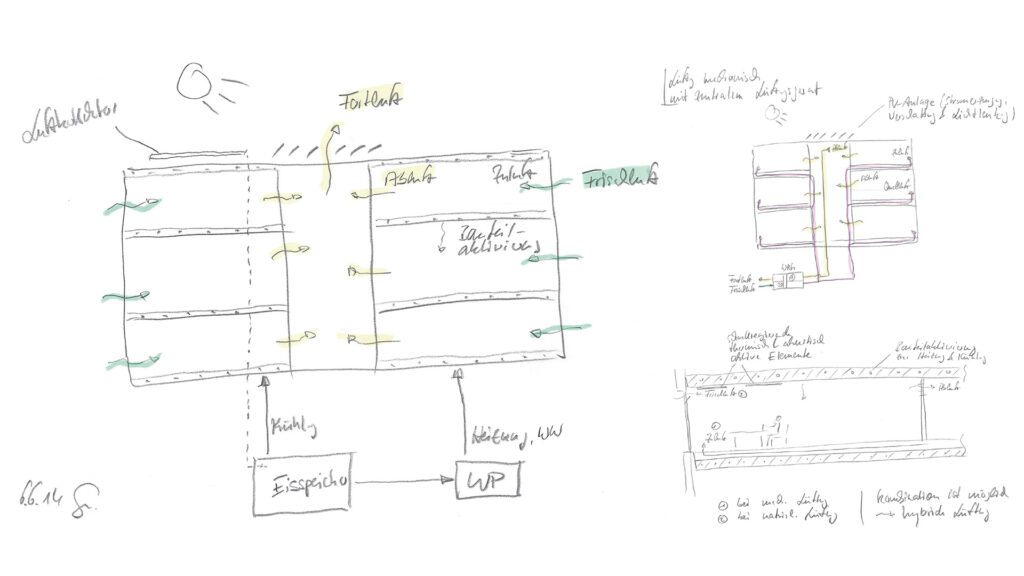 Luftkollektor
Fortluft
Abluft
Zuluft
Frischluft
Bauteil-
aktivierung
Kühlg
Heizung, WW
Eisspeicher
WP
6.6.14
Lüftg mechanisch,
mit zentralem Lüftungsgerät
PV-Anlage (Stromerzeugg,
Verschattung & Lichtlenkg)
Abluft
Zuluft
Abluft
Quellluft
WRG
Fortluft
Frischluft
thermisch & akustisch
aktive Elemente
Bauteilaktivierung
zur Heizung & Kühlung
Frischluft ②
Abluft
①
Zuluft
① bei mech. Lüftg
② bei natürl. Lüftg
Kombination ist möglich
→ hybride Lüftg